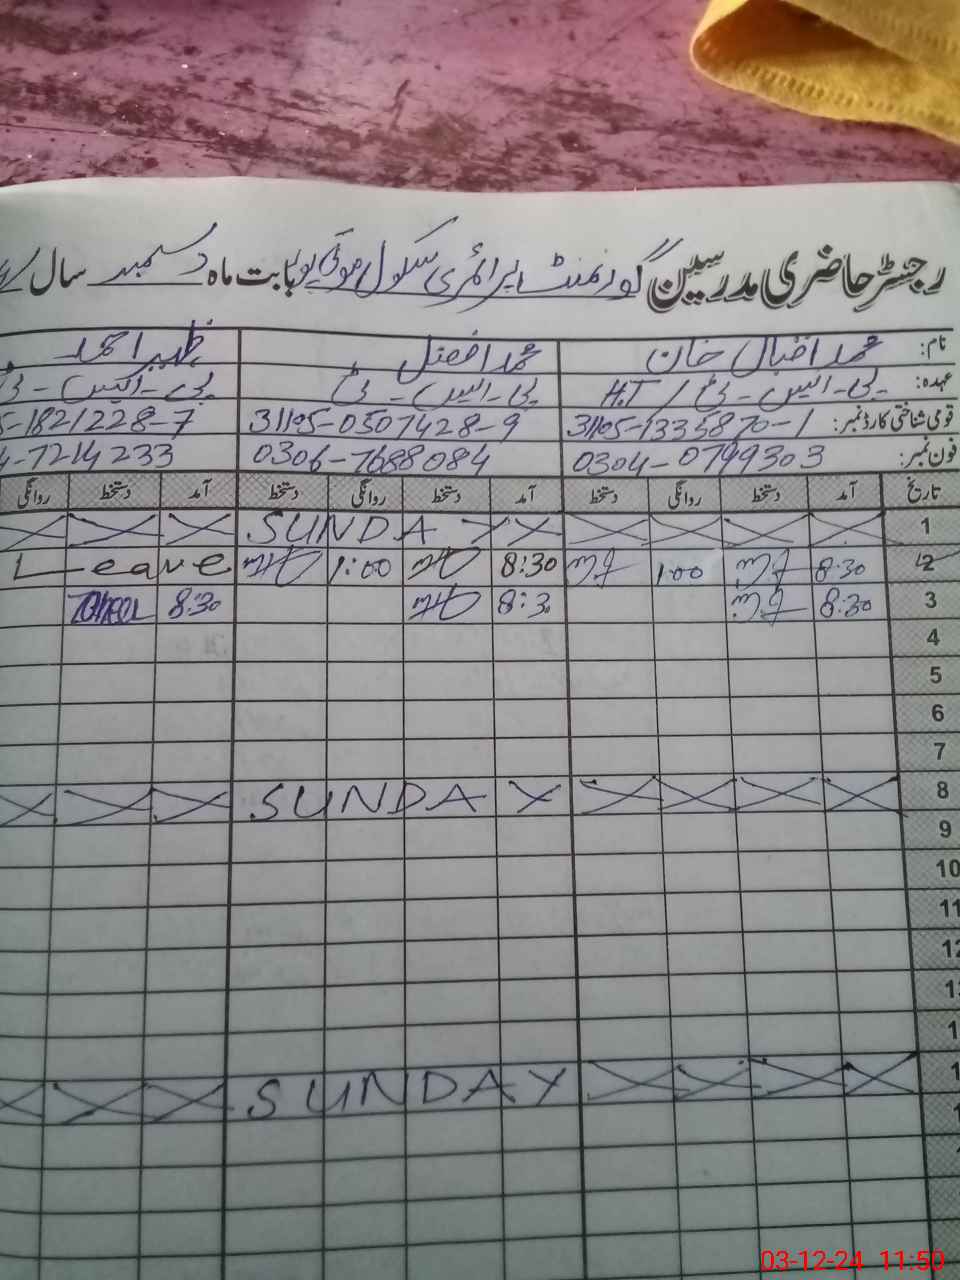 رجسٹر حاضری مدرسین گورنمنٹ پرائمری سکول بابت ماہ دسمبر سال
نام: محمد اقبال خان محمد افضل ظہیر احمد
عہدہ: پی-ایس-ٹی / H.T پی-ایس-ٹی پی-ایس-ٹی
قومی شناختی کارڈ نمبر: 31105-1335870-1 31105-0507428-9 5-1821228-7
فون نمبر: 0304-0799303 0306-7688084 4-7214233
تاریخ آمد دستخط روانگی دستخط آمد دستخط روانگی دستخط آمد دستخط روانگی
1 SUNDAY
2 8:30 1:00 8:30 1:00 Leave
3 8:30 8:30 8:30
4
5
6
7
8 SUNDAY
9
10
11
12
SUNDAY
03-12-24 11:50